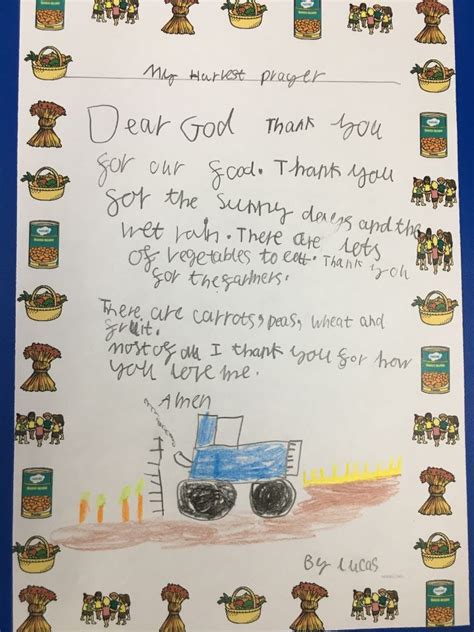 My Harvest prayer
Dear God Thank you
for our food. Thank you
for the Sunny days and the
wet rain. There are lots
of vegetables to eat. Thank you
for the farmers.
There are carrots, peas, wheat and
fruit.
most of all I thank you for how
you love me.
Amen
By Lucas